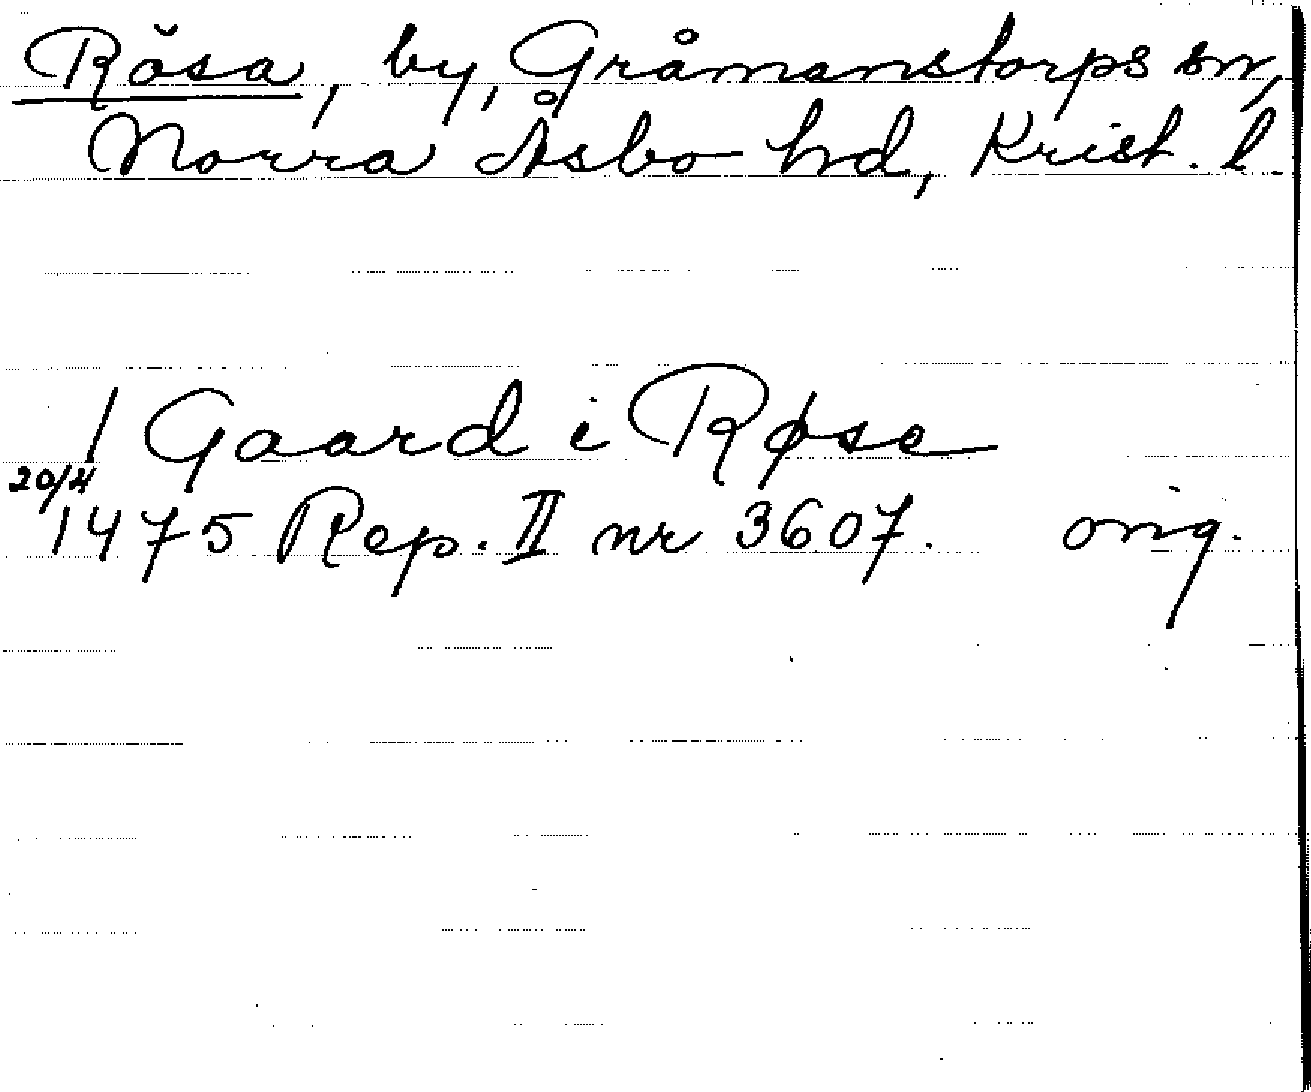 Rösa, by, Gråmanstorps sn,
Norra Åsbo hd, Krist. l.
1 Gaard i Røse
20/4
1475 Rep. II nr 3607. orig.